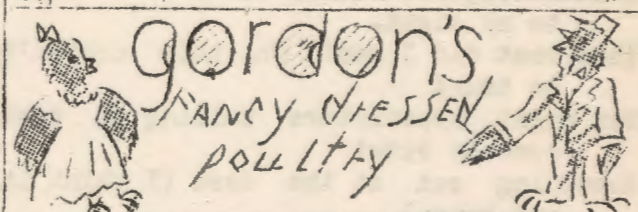 gordon's
FANCY dressed
poultry